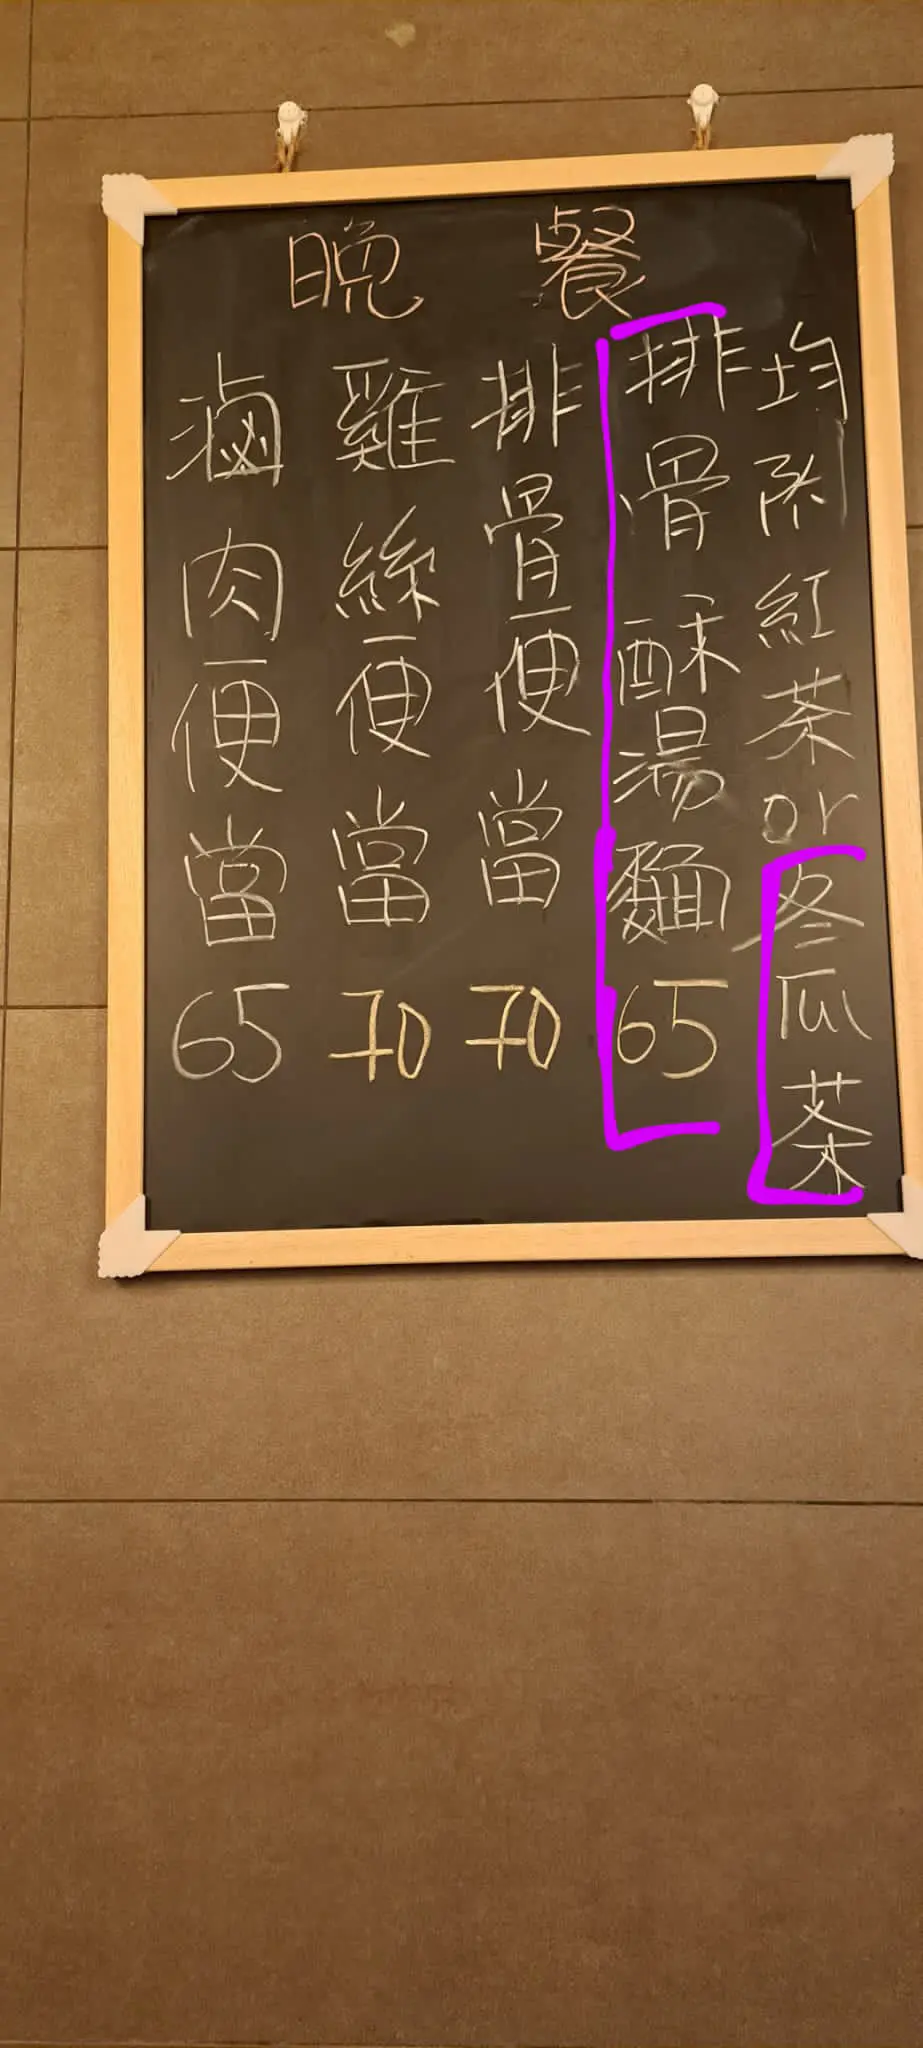 晚餐
均附紅茶or冬瓜茶
排骨酥湯麵65
排骨便當70
雞絲便當70
滷肉便當65